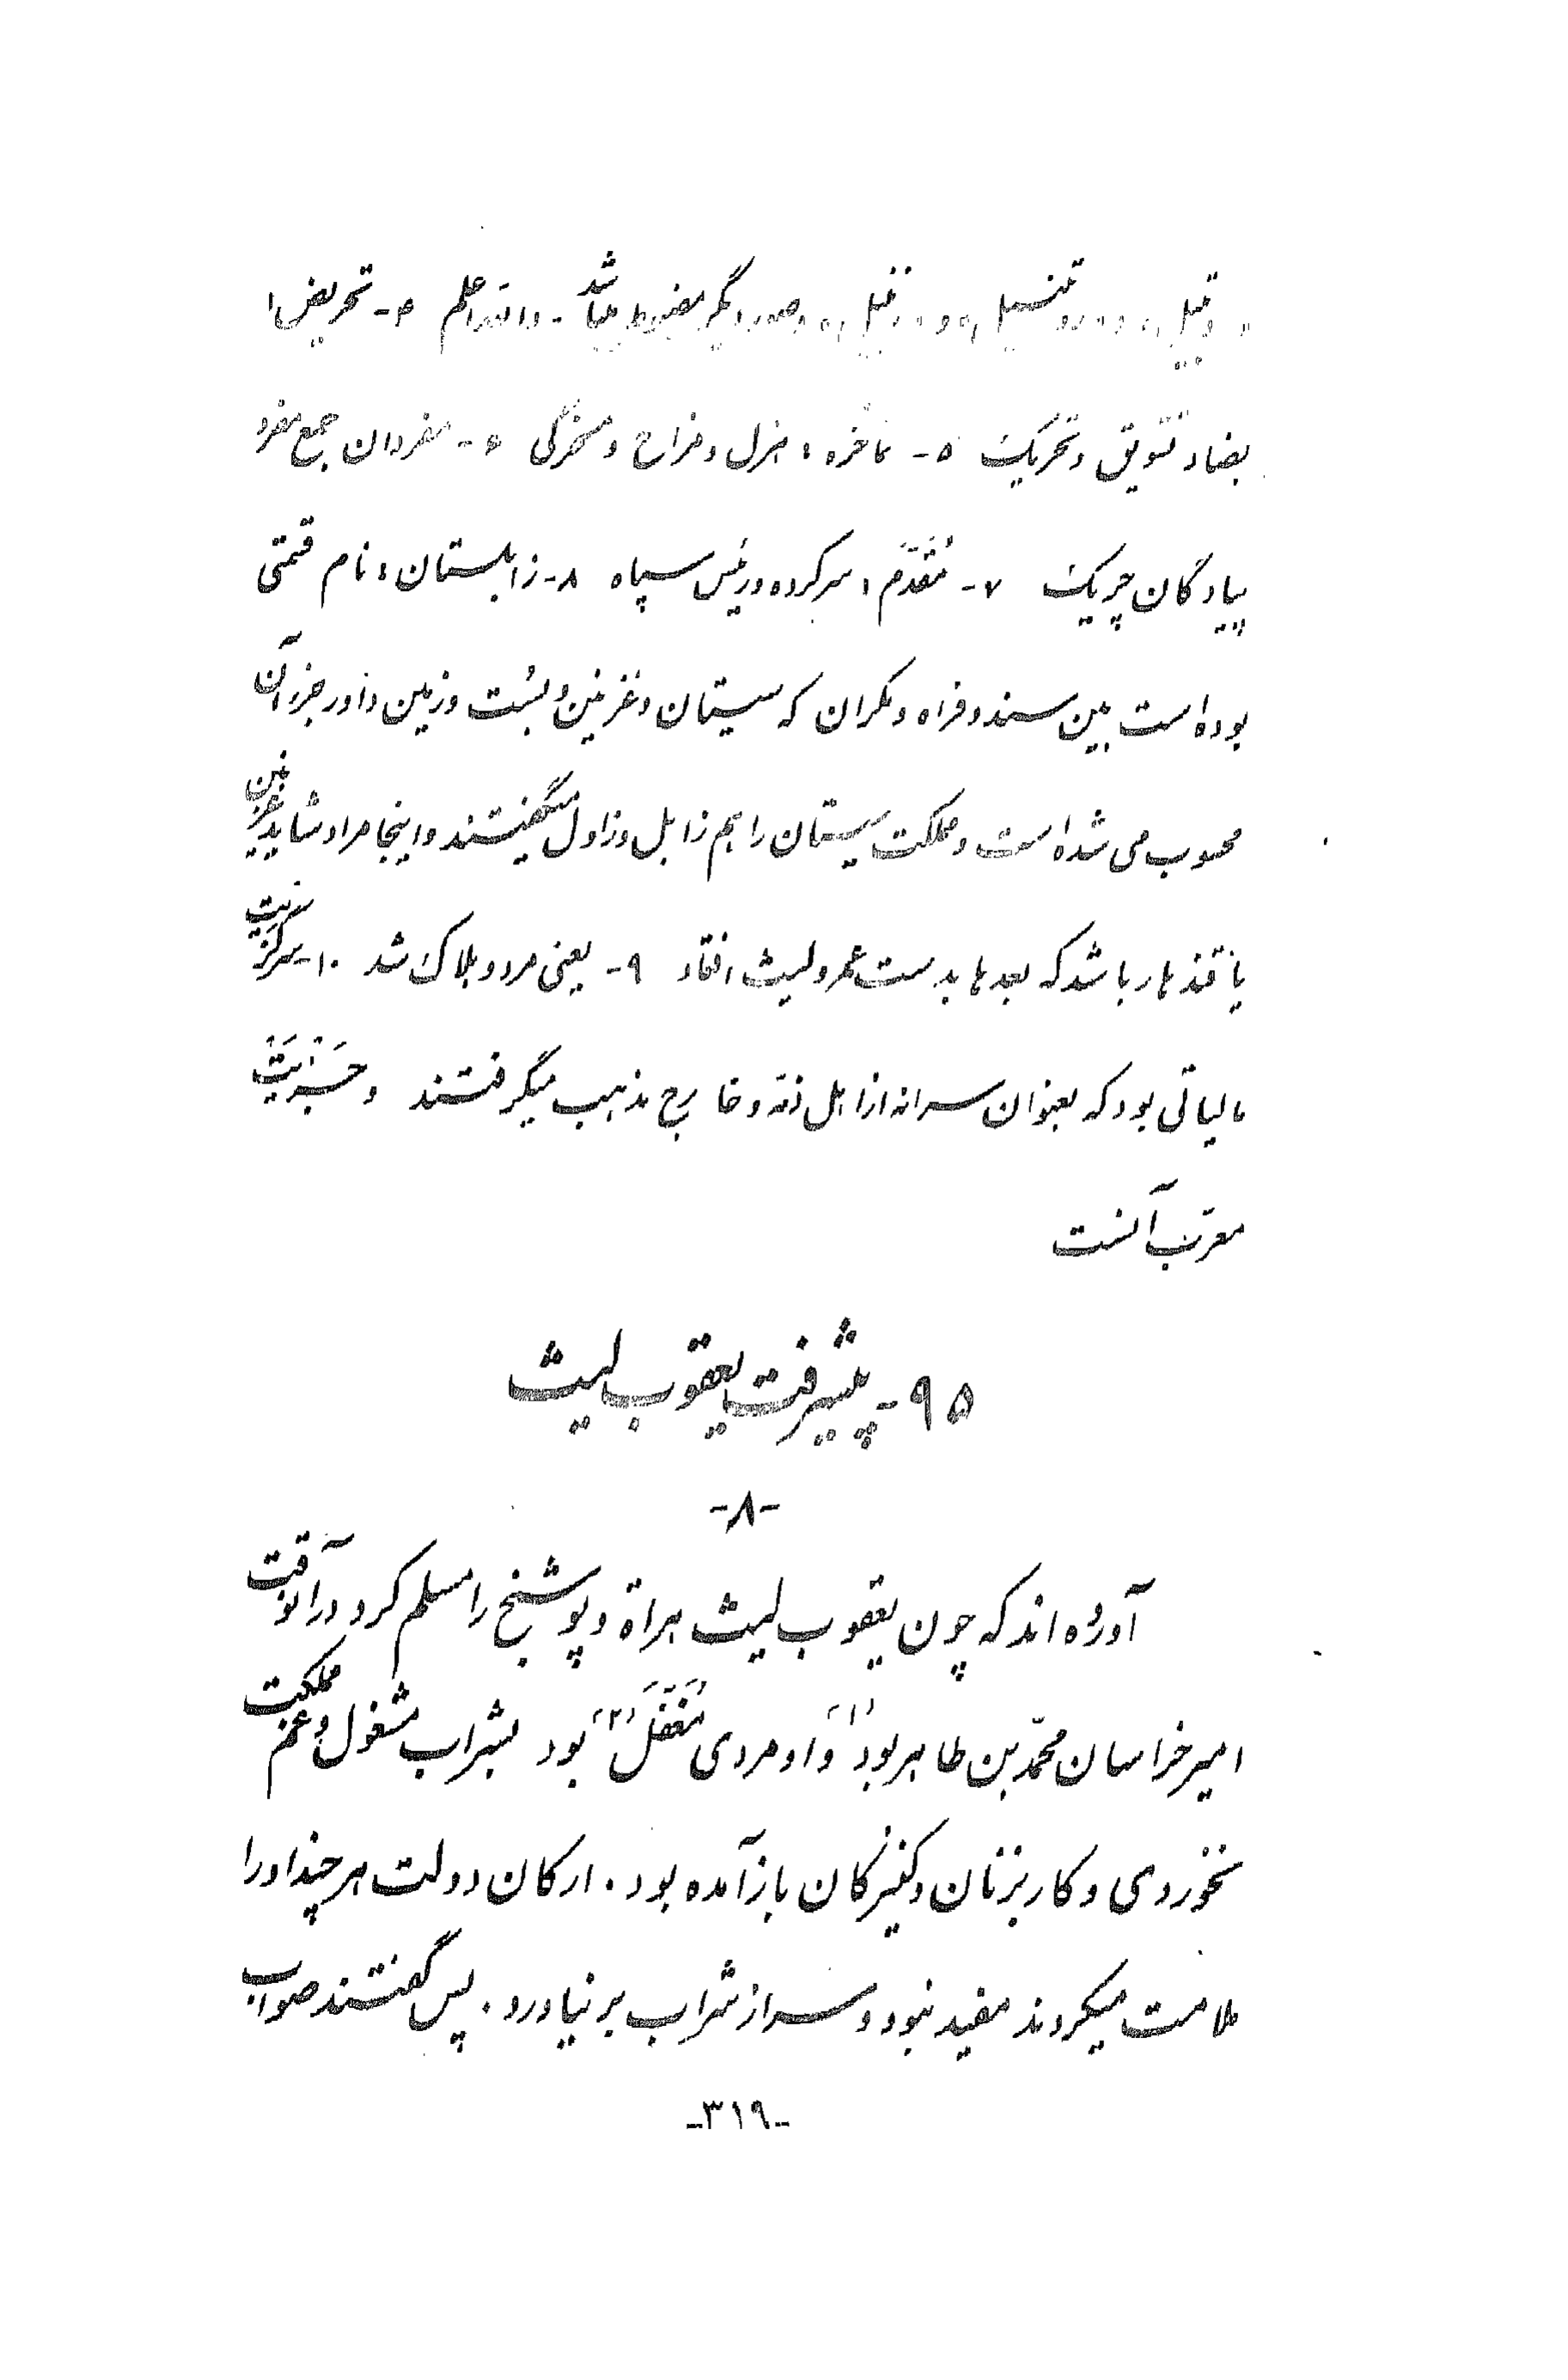 « وقبیل » و « روتنسیل » و « زنبیل » وصور دیگر مضبوط میباشد - والله اعلم ۴- تحریض :
بضاد تشویق و تحریک ۵- ماخره : هزل و مزاح و مسخرگی ۶- مفردان جمع مفرد
پیادگان چریک ۷- مُقَدَّم : سرکرده ورئیس سپاه ۸- زابلستان : نام قسمتی
بوده است بین سند و فراه و مکران که سیستان و غزنین و بُست و زمین داور جزء آن
محسوب می شده است و مملکت سیستان را هم زابل و زاول میگفتند و اینجا مراد شاید غزنین
یا قندهار باشد که بعدها بدست عمرو لیث افتاد ۹- یعنی مرد و هلاک شد ۱۰- سرگزیت
مالیاتی بود که بعنوان سرانه از اهل ذمّه و خارج مذهب میگرفتند و جَزْیَت
معرّب آنست
۹۵- پیشرفت یعقوب لیث
-۸-
آورده اند که چون یعقوب لیث هراة و پوشنج را مسلم کرد در آنوقت
امیر خراسان محمّد بن طاهر بود «۱» و او مردی مُغَفَّل «۲» بود بشراب مشغول و غم مملکت
نخوردی و کار بزنان و کنیزکان باز آمده بود . ارکان دولت هر چند او را
ملامت میکردند مفید نبود و سر از شراب بر نیاورد . پس گفتند صواب
-۳۱۹-